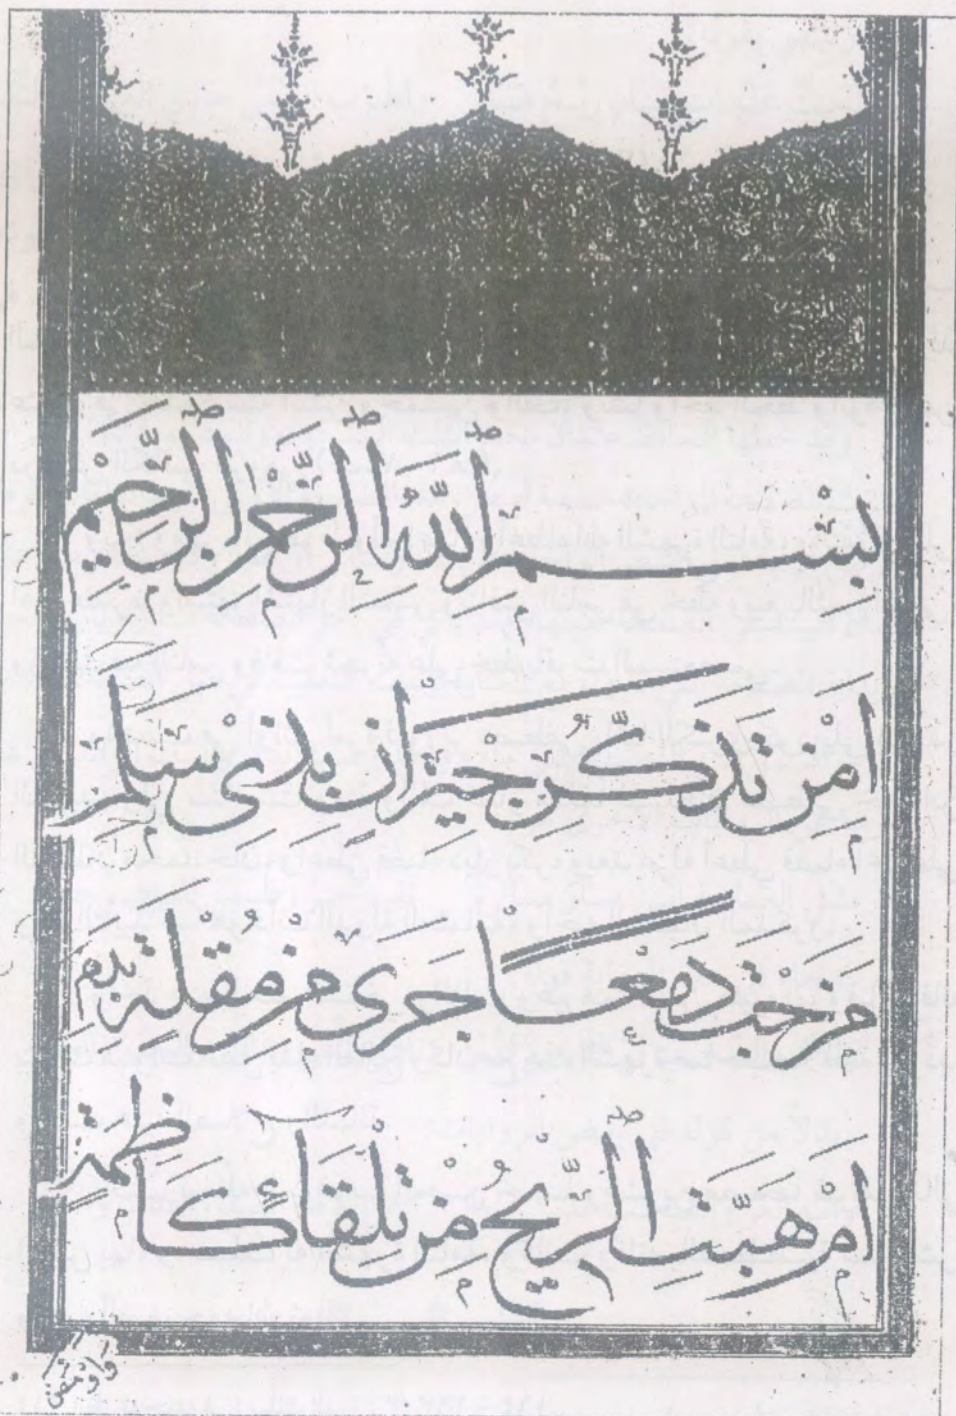 بِسْمِ اللهِ الرَّحْمٰنِ الرَّحِيْمِ
اَمِنْ تَذَكُّرِ جِيْرَانٍ بِذِيْ سَلَمٍ
مَزَجْتَ دَمْعًا جَرٰى مِنْ مُقْلَةٍ بِدَمِ
اَمْ هَبَّتِ الرِّيْحُ مِنْ تِلْقَآءِ كَاظِمَةٍ
واومض